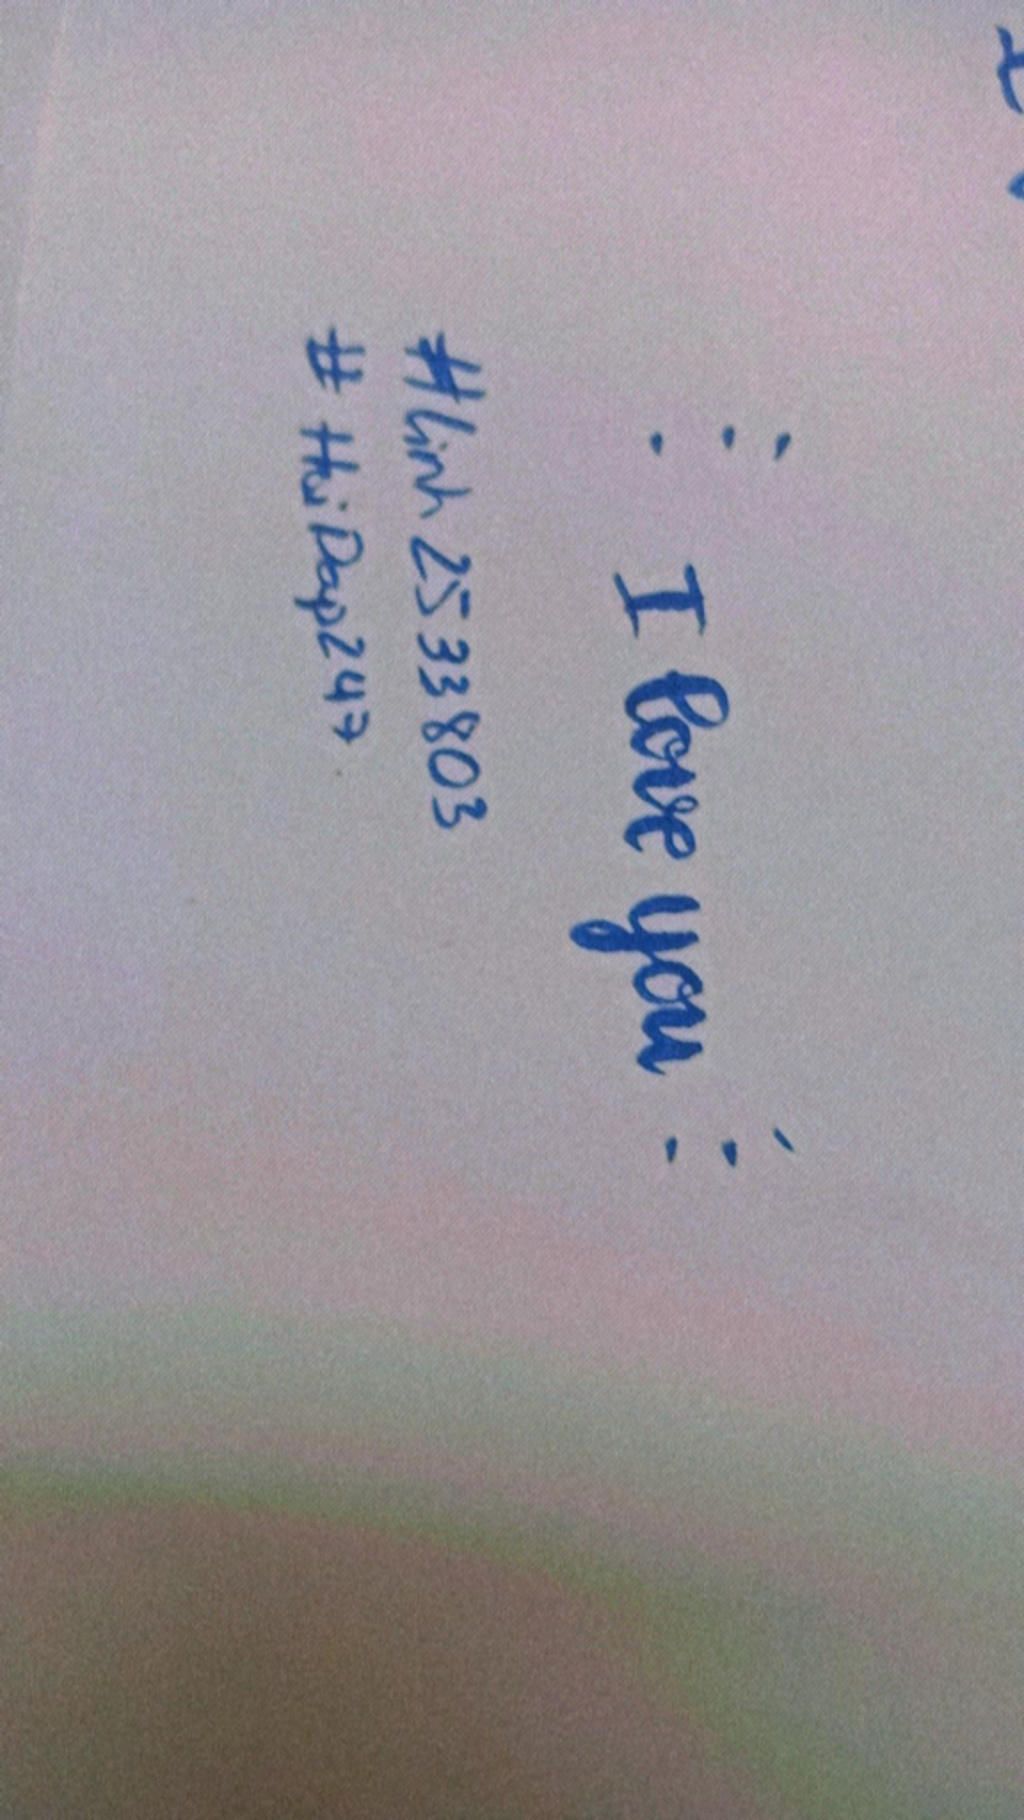 I love you
#linh2533803
# HoiDap247